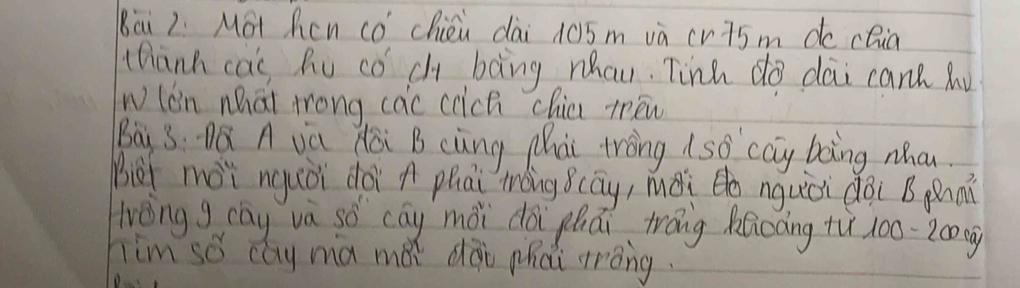 Bài 2: Một hcn có chiều dài 105m và cr 75m đc chia
thành các hv có dt bằng nhau. Tính độ dài cạnh hv
lớn nhất trong các cách chia trên
Bài 3: Đội A và đội B cùng phải trồng 1 số cây bằng nhau.
Biết mỗi người đội A phải trồng 8 cây, mỗi người đội B phải
trồng 9 cây và số cây mỗi đội phải trồng khoảng từ 100 - 200 cây
Tìm số cây mà mỗi đội phải trồng.